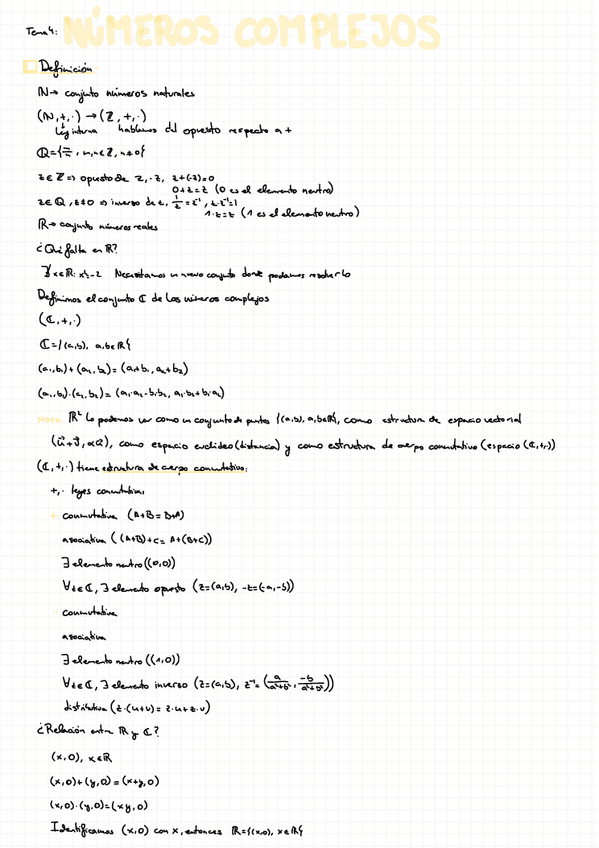 Tema 4: NÚMEROS COMPLEJOS
Definición
ℕ → conjunto números naturales
(ℕ,+,·) → (ℤ,+,·)
ley interna hablamos del opuesto respecto a +
ℚ={m/n, m,n∈ℤ, n≠0}
z∈ℤ ⇒ opuesto de z, -z, z+(-z)=0
0+z=z (0 es el elemento neutro)
z∈ℚ, z≠0 ⇒ inverso de z, 1/z = z⁻¹, z·z⁻¹=1
1·z=z (1 es el elemento neutro)
ℝ → conjunto números reales
¿Qué falta en ℝ?
∄ x∈ℝ: x²=-2 Necesitamos un nuevo conjunto donde podamos resolverlo
Definimos el conjunto ℂ de los números complejos
(ℂ,+,·)
ℂ={(a,b), a,b∈ℝ}
(a₁,b₁)+(a₂,b₂)=(a₁+b₁, a₂+b₂)
(a₁,b₁)·(a₂,b₂)=(a₁·a₂-b₁b₂, a₁·b₂+b₁·a₂)
NOTA: ℝ² lo podemos ver como un conjunto de puntos {(a,b), a,b∈ℝ}, como estructura de espacio vectorial
(u⃗+v⃗, α u⃗), como espacio euclídeo (distancia) y como estructura de cuerpo conmutativo (espacio (ℂ,+,·))
(ℂ,+,·) tiene estructura de cuerpo conmutativo:
+,· leyes conmutativas
+ conmutativa (A+B=B+A)
asociativa ((A+B)+C=A+(B+C))
∃ elemento neutro ((0,0))
∀z∈ℂ, ∃ elemento opuesto (z=(a,b), -z=(-a,-b))
· conmutativa
asociativa
∃ elemento neutro ((1,0))
∀z∈ℂ, ∃ elemento inverso (z=(a,b), z⁻¹=(a/(a²+b²), -b/(a²+b²)))
distributiva (z·(u+v)=z·u+z·v)
¿Relación entre ℝ y ℂ?
(x,0), x∈ℝ
(x,0)+(y,0)=(x+y,0)
(x,0)·(y,0)=(xy,0)
Identificamos (x,0) con x, entonces ℝ={(x,0), x∈ℝ}